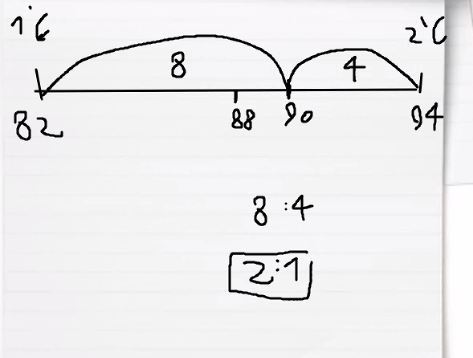 1°C 2°C
8 4
82 88 90 94
8:4
2:1